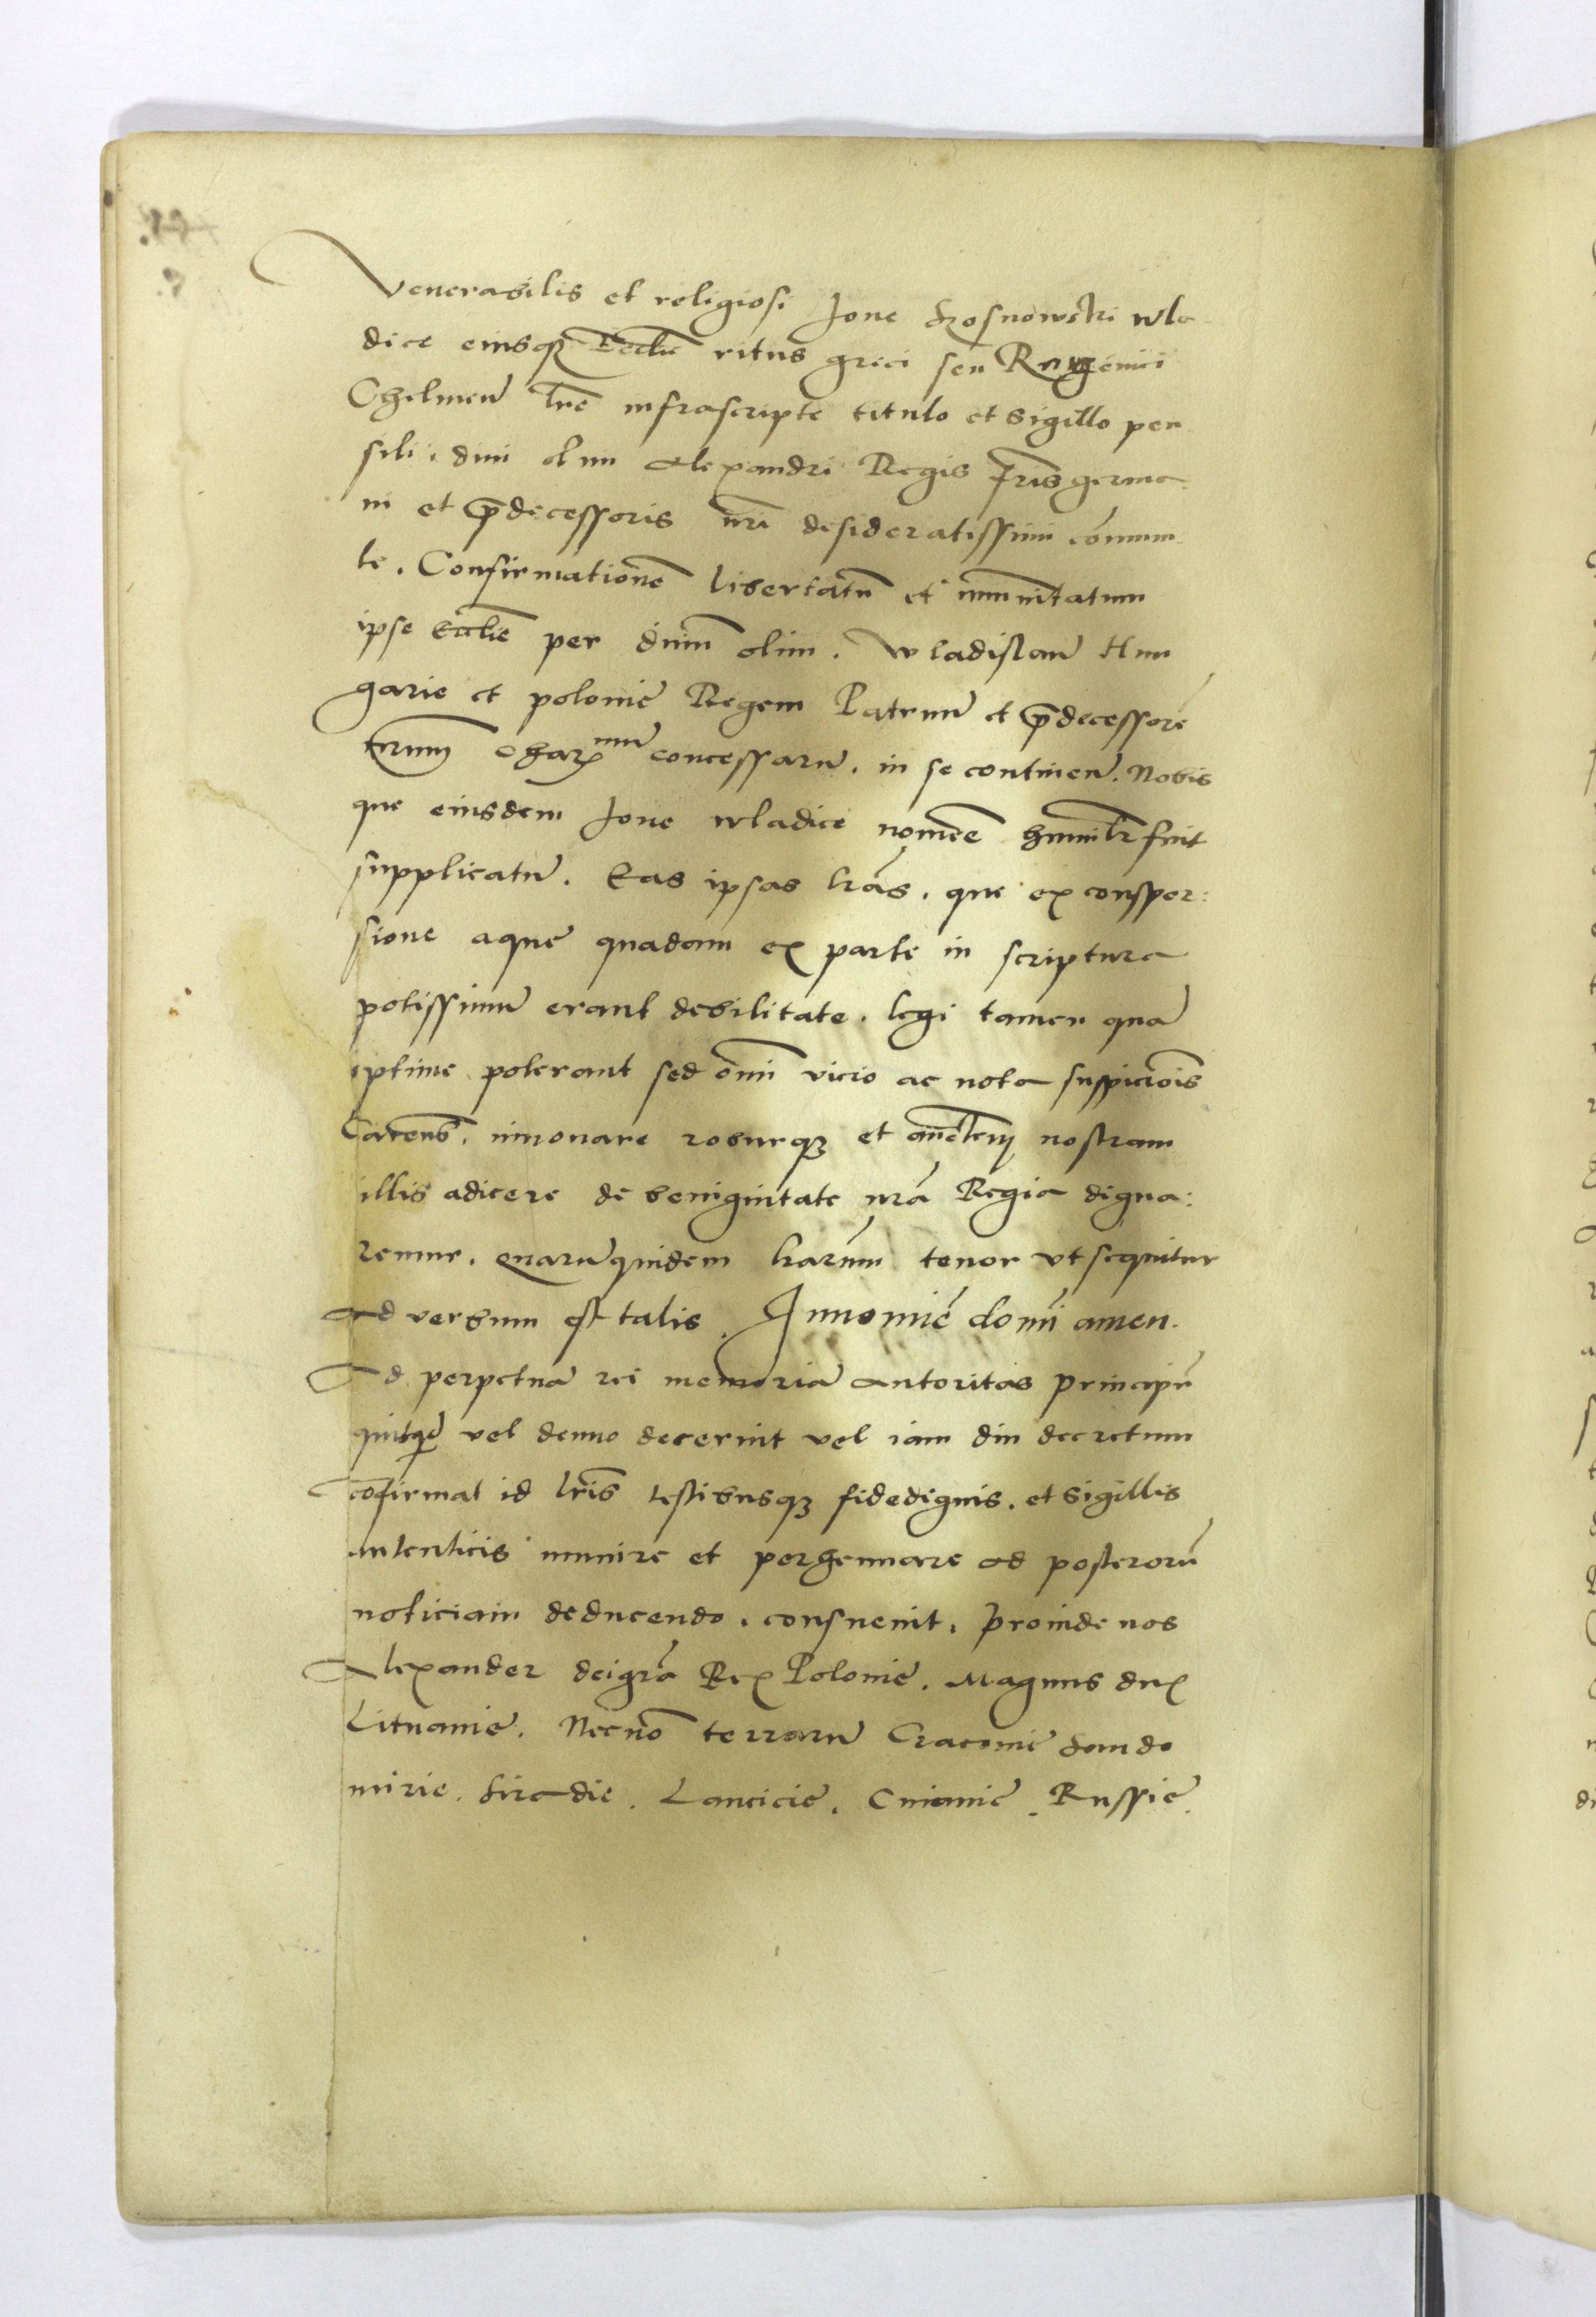 Venerabilis et religiosi Jone Sosnowski wla
dice eiusq₃ Ecclie ritus greci seu Rutenici
Chelmen̄ lr̄e infrascripte titulo et sigillo pen
sili, diui olim Alexandri Regis fr̄is germa
ni et p̄decessoris nr̄i desideratissimi com̄uni
te. Confirmationē libertatū et im̄unitatum
ipse Ecclie per diuū olim. Wladislaū Hun
garie et polonie Regem Patruū et p̄decessorē
nr̄um Char^mum concessarū. in se continen̄. Nobis
que eiusdem Jone wladice nomīe humilr̄ fuit
supplicatū. Eas ipsas lr̄as. que ex consper:
sione aque quadam ex parte in scriptura
potissimū erant debilitate. legi tamen quā
optime poterant sed om̄i vicio ac nota suspicio͞is
Caren͞s. innouare roburq₃ et nostram
illis adicere de benignitate nr̄a Regia digna:
remur. quarū quidem lr̄arum tenor vt sequitur
ad verbum est talis. In nomīe domī amen.
Ad perpetuā rei memoriā autoritas principū
quitq̄d vel denuo decernit vel iam diu decretum
cōfirmat id lr̄is testibusq₃ fidedignis. et sigillis
autenticis munire et perhennare ad posterorū
noticiam deducendo. consueuit. Proinde nos
Alexander dei gr̄a Rex Polonie. Magnus dux
Lituanie. Necnō terrarū Cracouie Sando
mirie. Siradie. Lancicie. Cuiauie. Russie.